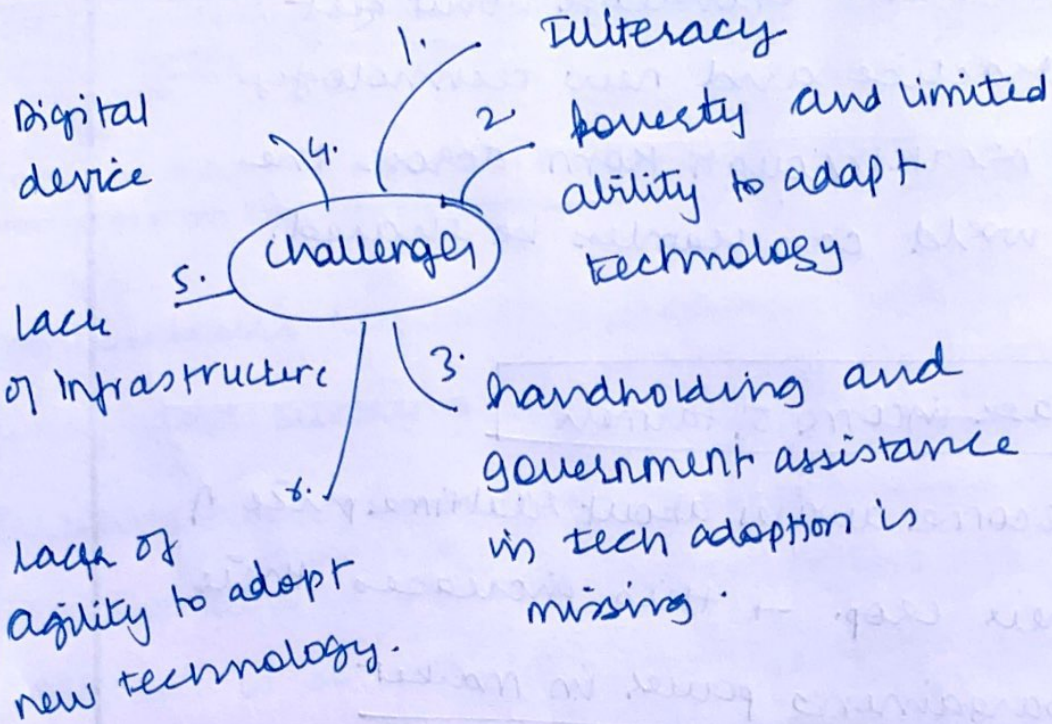 challenges
1. Illiteracy
2. poverty and limited
ability to adapt
technology
3. handholding and
government assistance
in tech adoption is
missing.
4. Digital
device
5. lack
of infrastructure
lack of
agility to adopt
new technology.